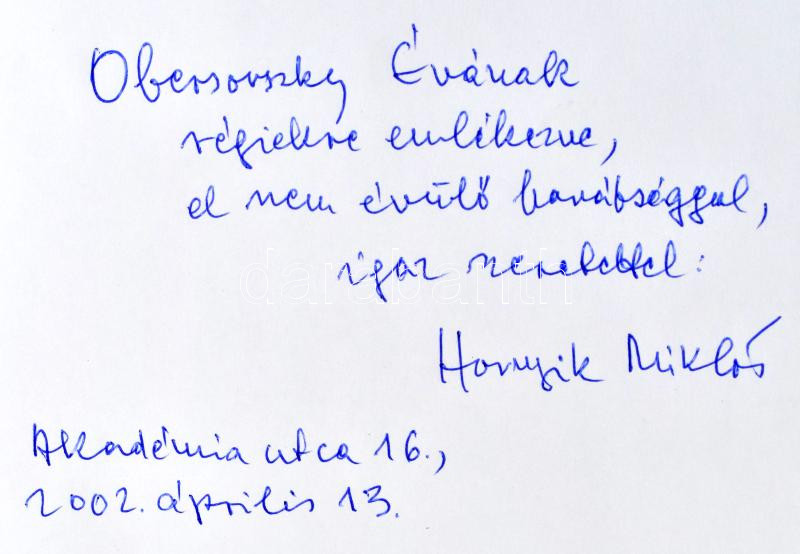 Obersovszky Évának
régiekre emlékezve,
el nem évülő barátsággal,
igaz szeretettel:
darabanth
Hornyik Miklós
Akadémia utca 16.,
2002. április 13.